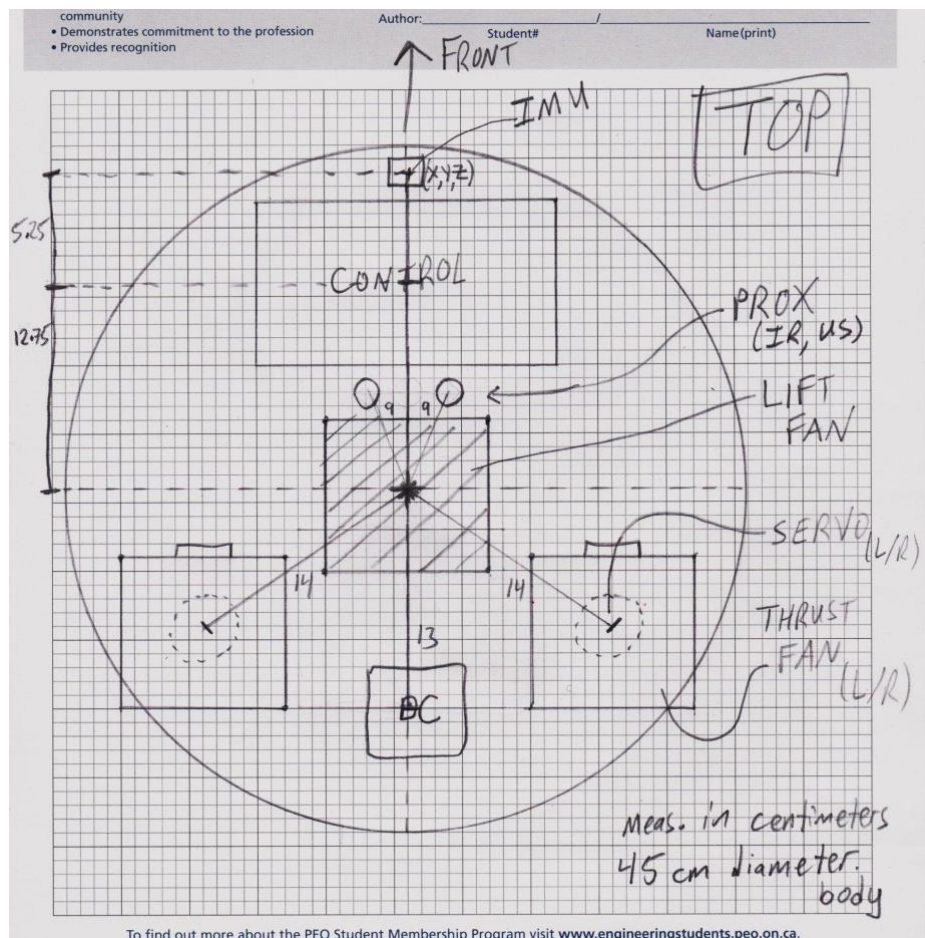 community
• Demonstrates commitment to the profession
• Provides recognition
Author:
Student#
/
Name (print)
FRONT
IMU
TOP
(X,Y,Z)
5.25
CONTROL
12.75
PROX
(IR, US)
9 9
LIFT
FAN
SERVO (L/R)
14
14
THRUST
FAN (L/R)
13
DC
Meas. in centimeters
45 cm diameter.
body
To find out more about the PEO Student Membership Program visit www.engineeringstudents.peo.on.ca.